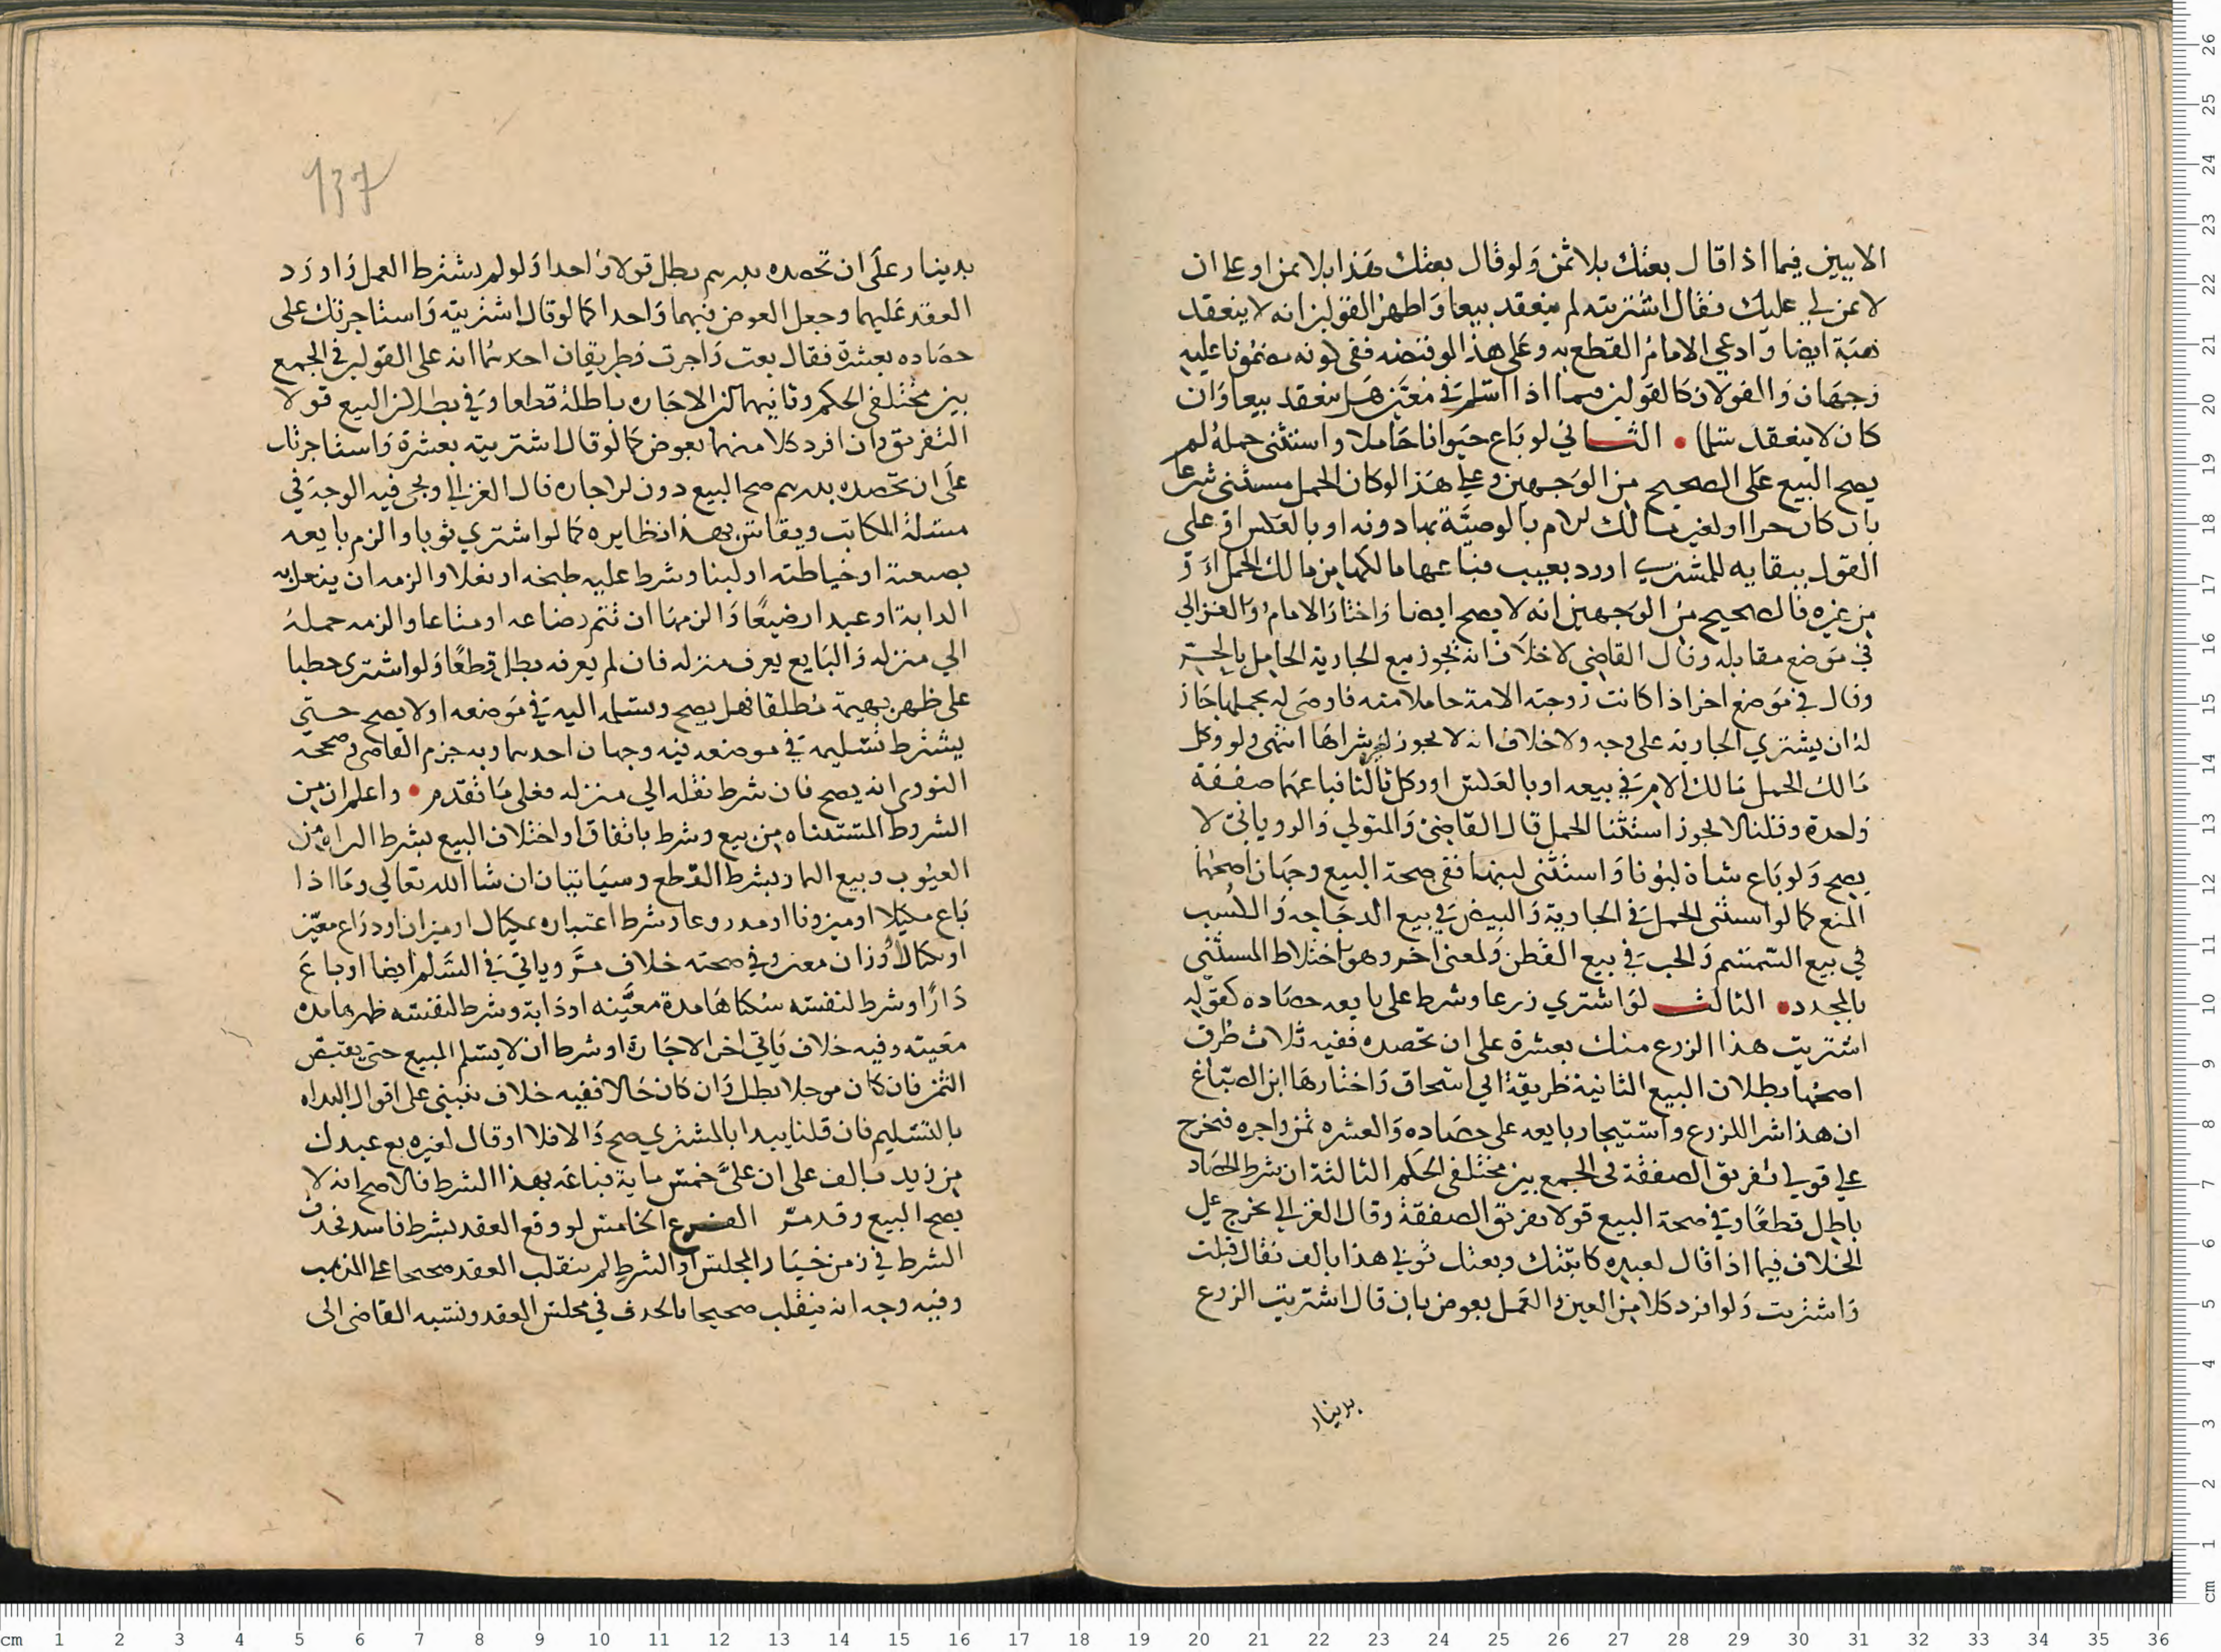 الاببين فيما اذا قال بعتك بلا ثمن ولو قال بعتك هذا بلا ثمن او على ان
لا ثمن لي عليك فقال اشتريته لم ينعقد بيعا واظهر القولين انه لا ينعقد
هبة ايضا وادعي الامام القطع به وعلى هذا لو قبضه ففي كونه مضمونا عليه
وجهان والقولان كالقولين فيما اذا اسلم في معين هل ينعقد بيعا وان
كان لا ينعقد سلما • الثاني لو باع حيوانا حاملا واستثنى حمله لم
يصح البيع على الصحيح من الوجهين وعلى هذا لو كان الحمل مستثنى شرعا
بان كان حرا او لغير مالك الام بالوصية بها دونه او بالعكس او على
القول ببقايه للمشتري اورد بعيب فباعها مالكها من مالك الحمل او
من غيره فالصحيح من الوجهين انه لا يصح ايضا واختار الامام والغزالي
في موضع مقابله وقال القاضي لا خلاف انه يجوز بيع الجارية الحامل بالحر
وقال في موضع اخر اذا كانت زوجته الامة حاملا منه فاوصى له بحملها جاز
له ان يشتري الجارية على وجه ولا خلاف انه لا يجوز لغيره شراها انتهى ولو وكل
مالك الحمل مالك الام في بيعه او بالعكس او وكل ثالثا فباعهما صفقة
واحدة وقلنا لا يجوز استثنا الحمل قال القاضي والمتولي والروياني لا
يصح ولو باع شاة لبونا واستثنى لبنها ففي صحة البيع وجهان اصحهما
المنع كما لو استثنى الحمل في الجارية والبيض في بيع الدجاجه والكسب
في بيع السمسم والحب في بيع القطن ولمعنى اخر وهو اختلاط المستثنى
بالمجدد • الثالث لو اشتري زرعا وشرط على بايعه حصاده كقوله
اشتريت هذا الزرع منك بعشرة على ان تحصده ففيه ثلاث طرق
اصحها بطلان البيع الثانية طريقة ابي اسحاق واختارها ابن الصباغ
ان هذا شرا للزرع واستيجار بايعه على حصاده والعشره ثمن واجره فيخرج
على قولي تفريق الصفقة في الجمع بين مختلفي الحكم الثالثة ان شرط الحصاد
باطل قطعا وفي صحة البيع قولا تفريق الصفقة وقال الغزالي يخرج على
الخلاف فيما اذا قال لعبده كاتبتك وبعتك ثوبي هذا بالف فقال قبلت
واشتريت ولو افرد كلا من العين والعمل بعوض بان قال اشتريت الزرع
بدينار
١٣٧
بدينار على ان تحصده بدرهم بطل قولا واحدا ولو لم يشترط العمل واورد
العقد عليهما وجعل العوض فيهما واحدا كما لو قال اشتريته واستاجرتك على
حصاده بعشرة فقال بعت واجرت فطريقان احدهما انه على القولين في الجمع
بين مختلفي الحكم وثانيهما ان الاجاره باطلة قطعا وفي بطلان البيع قولا
التفريق وان افرد كلا منهما بعوض كما لو قال اشتريته بعشرة واستاجرتك
على ان تحصده بدرهم صح البيع دون الاجاره قال الغزالي ويجى فيه الوجه في
مسئلة المكاتب ويقاس بهذا نظايره كما لو اشتري ثوبا والزم بايعه
بصبغه او خياطته او لبنا وشرط عليه طبخه او نعلا والزمه ان ينعل به
الدابة او عبدا رضيعا والزمها ان تتم رضاعه او متاعا والزمه حمله
الي منزله والبايع يعرف منزله فان لم يعرفه بطل قطعا ولو اشترى حطبا
على ظهر بهيمة مطلقا فهل يصح ويسلمه اليه في موضعه او لا يصح حتى
يشترط تسليمه في موضعه فيه وجهان احدهما وبه جزم القاضي وصححه
النووي انه يصح فان شرط نقله الي منزله فعلى ما تقدم • واعلم ان من
الشروط المستثناه من بيع وشرط باتفاق او اختلاف البيع بشرط البراه من
العيوب وبيع الثمار بشرط القطع وسياتيان ان شا الله تعالي وما اذا
باع مكيلا او ميزونا او مدروعا وشرط اعتباره بمكيال او ميزان او دراع معين
او بكيال او وزان معين وفي صحته خلاف مر وياتي في السلم ايضا او باع
دارا وشرط لنفسه سكناها مدة معينه او دابة وشرط لنفسه ظهرها مده
معينه وفيه خلاف ياتي اخر الاجارة او شرط ان لا يسلم المبيع حتى يقبض
الثمن فان كان موجلا بطل وان كان حالا ففيه خلاف ينبني على اقوال البداه
بالتسليم فان قلنا يبدا بالمشتري صح والا فلا او قال لغيره بع عبدك
من زيد بالف على ان على خمس ماية فباعه بهذا الشرط فالاصح انه لا
يصح البيع وقد مر الفرع الخامس لو وقع العقد بشرط فاسد فحذف
الشرط في زمن خيار المجلس او الشرط لم ينقلب العقد صحيحا على المذهب
وفيه وجه انه ينقلب صحيحا بالحدف في مجلس العقد ونسبه القاضي الى